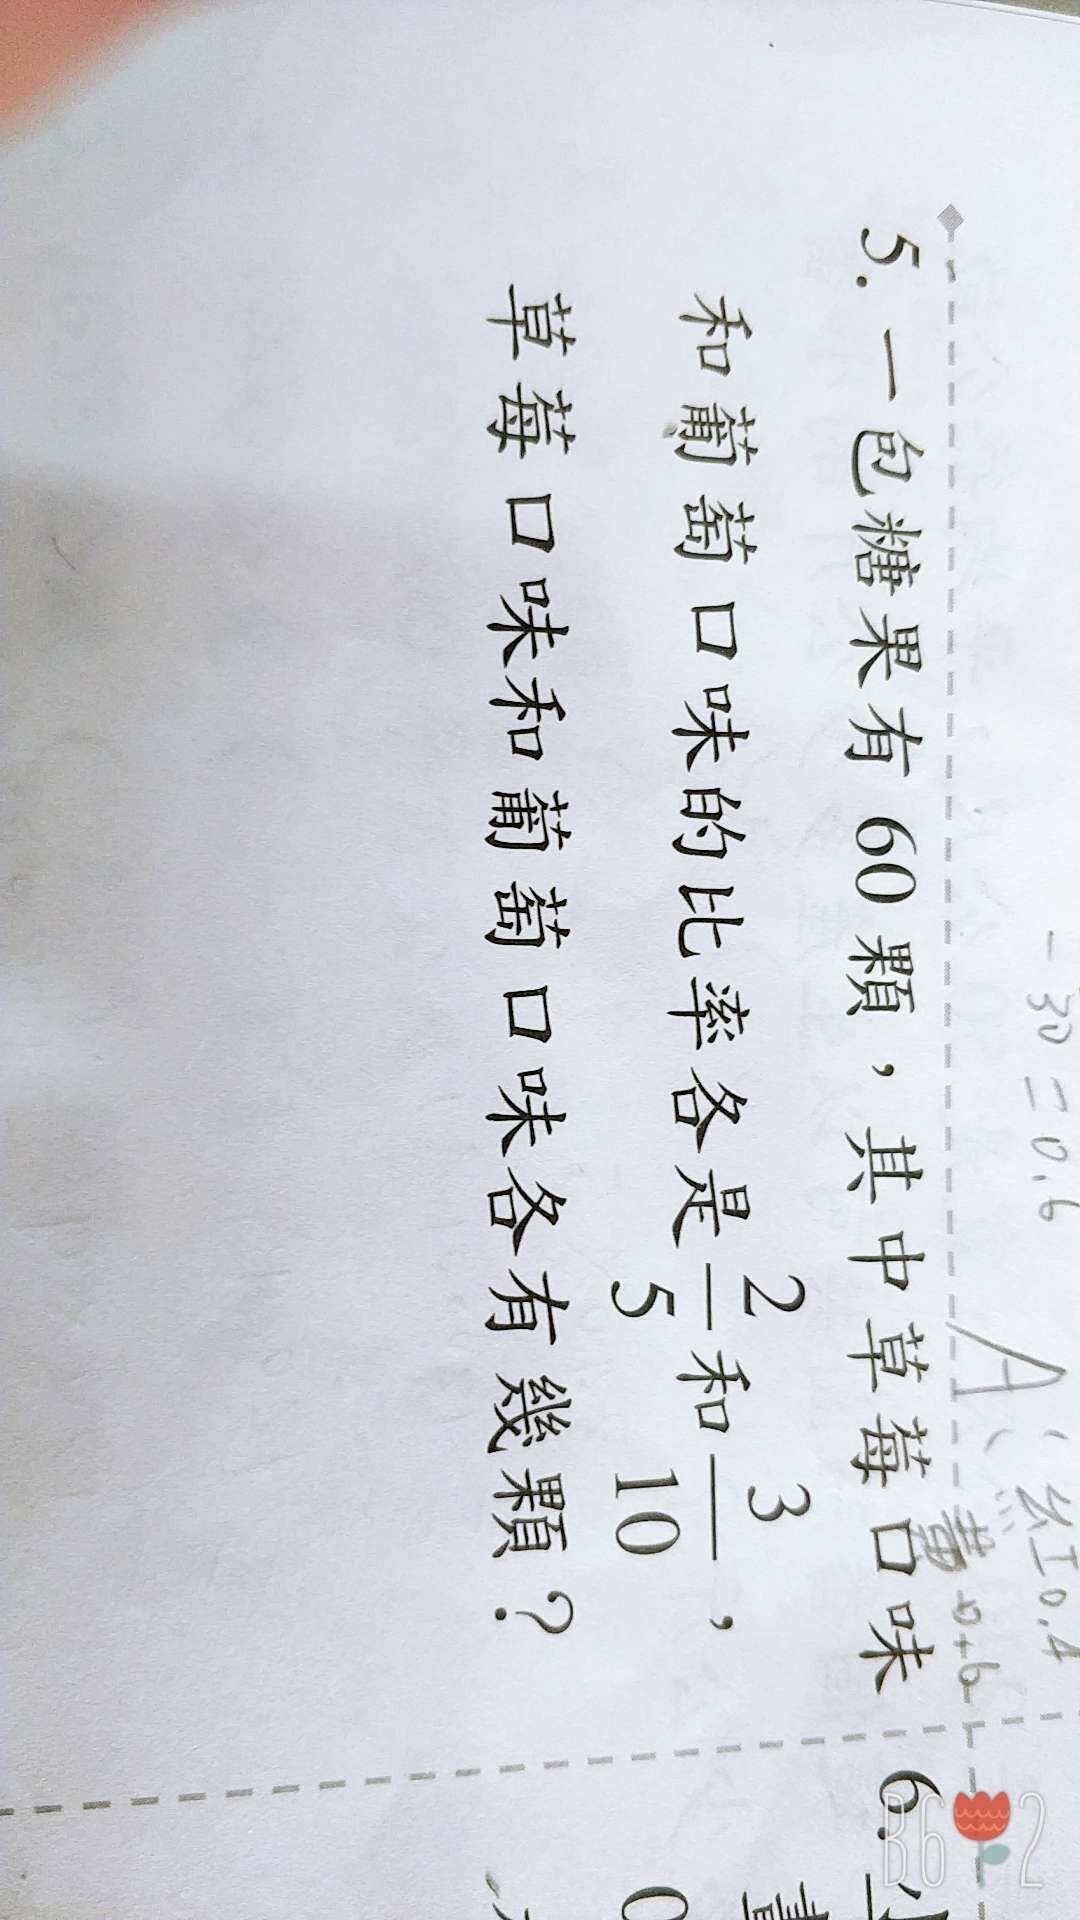 -30=0.6
A:紅0.4
黃0.6
5. 一包糖果有 60 顆，其中草莓口味
和葡萄口味的比率各是 2/5 和 3/10，
草莓口味和葡萄口味各有幾顆？
6.
B6 2